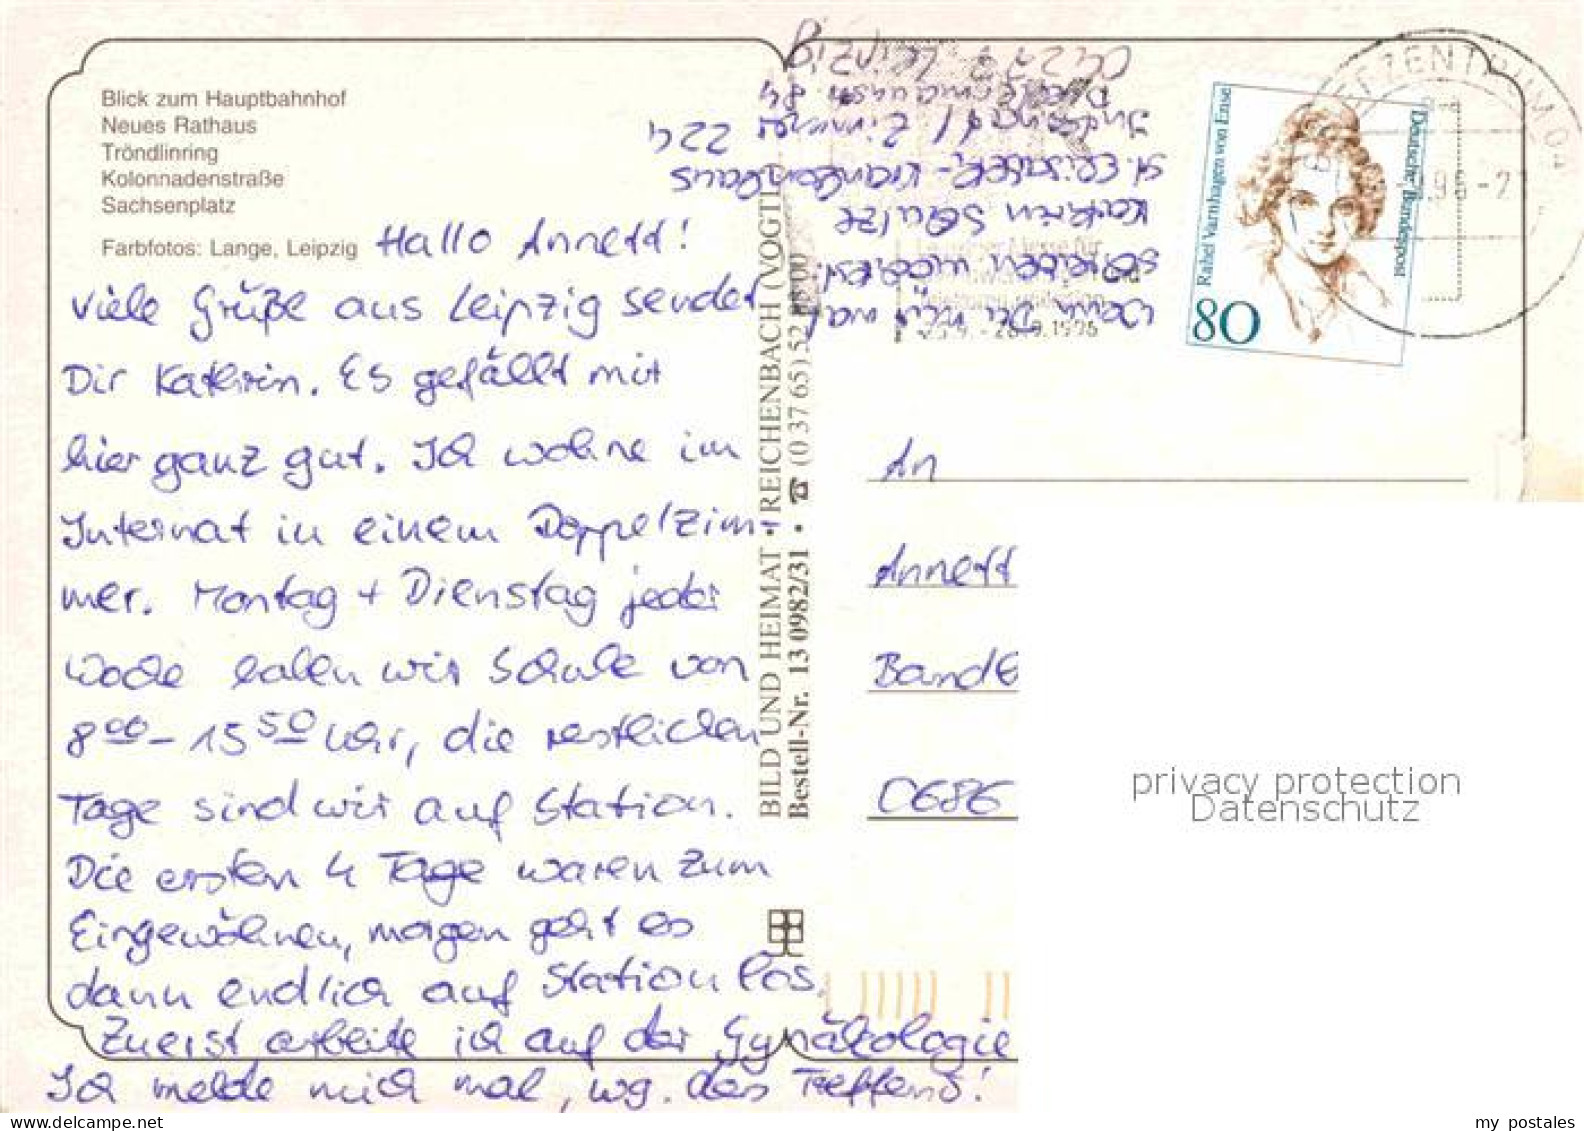 Blick zum Hauptbahnhof
Neues Rathaus
Tröndlinring
Kolonnadenstraße
Sachsenplatz
Farbfotos: Lange, Leipzig
Hallo Annett!
Viele Grüße aus Leipzig sendet
Dir Kathrin. Es gefällt mir
hier ganz gut. Ich wohne im
Internat in einem Doppelzim-
mer. Montag + Dienstag jeder
Woche haben wir Schule von
8⁰⁰ - 15⁵⁰ Uhr, die restlichen
Tage sind wir auf Station.
Die ersten 4 Tage waren zum
Eingewöhnen, morgen geht es
dann endlich auf Station los.
Zuerst arbeite ich auf der Gynäkologie
Ich melde mich mal, wg. des Treffens!
Wenn Du mir mal
schreiben möchtest:
Kathrin Schulze
St. Elisabeth-Krankenhaus
Internat / Zimmer 224
04277 Leipzig
BILD UND HEIMAT • REICHENBACH (VOGTL
Bestell-Nr. 13 0982/31 • ☎ (0 37 65) 52
Rahel Varnhagen von Ense
Deutsche Bundespost
80
BRIEFZENTRUM 04
Leipziger Messe für
- 28.9.1996
An
Annett
0686
privacy protection
Datenschutz
my postales